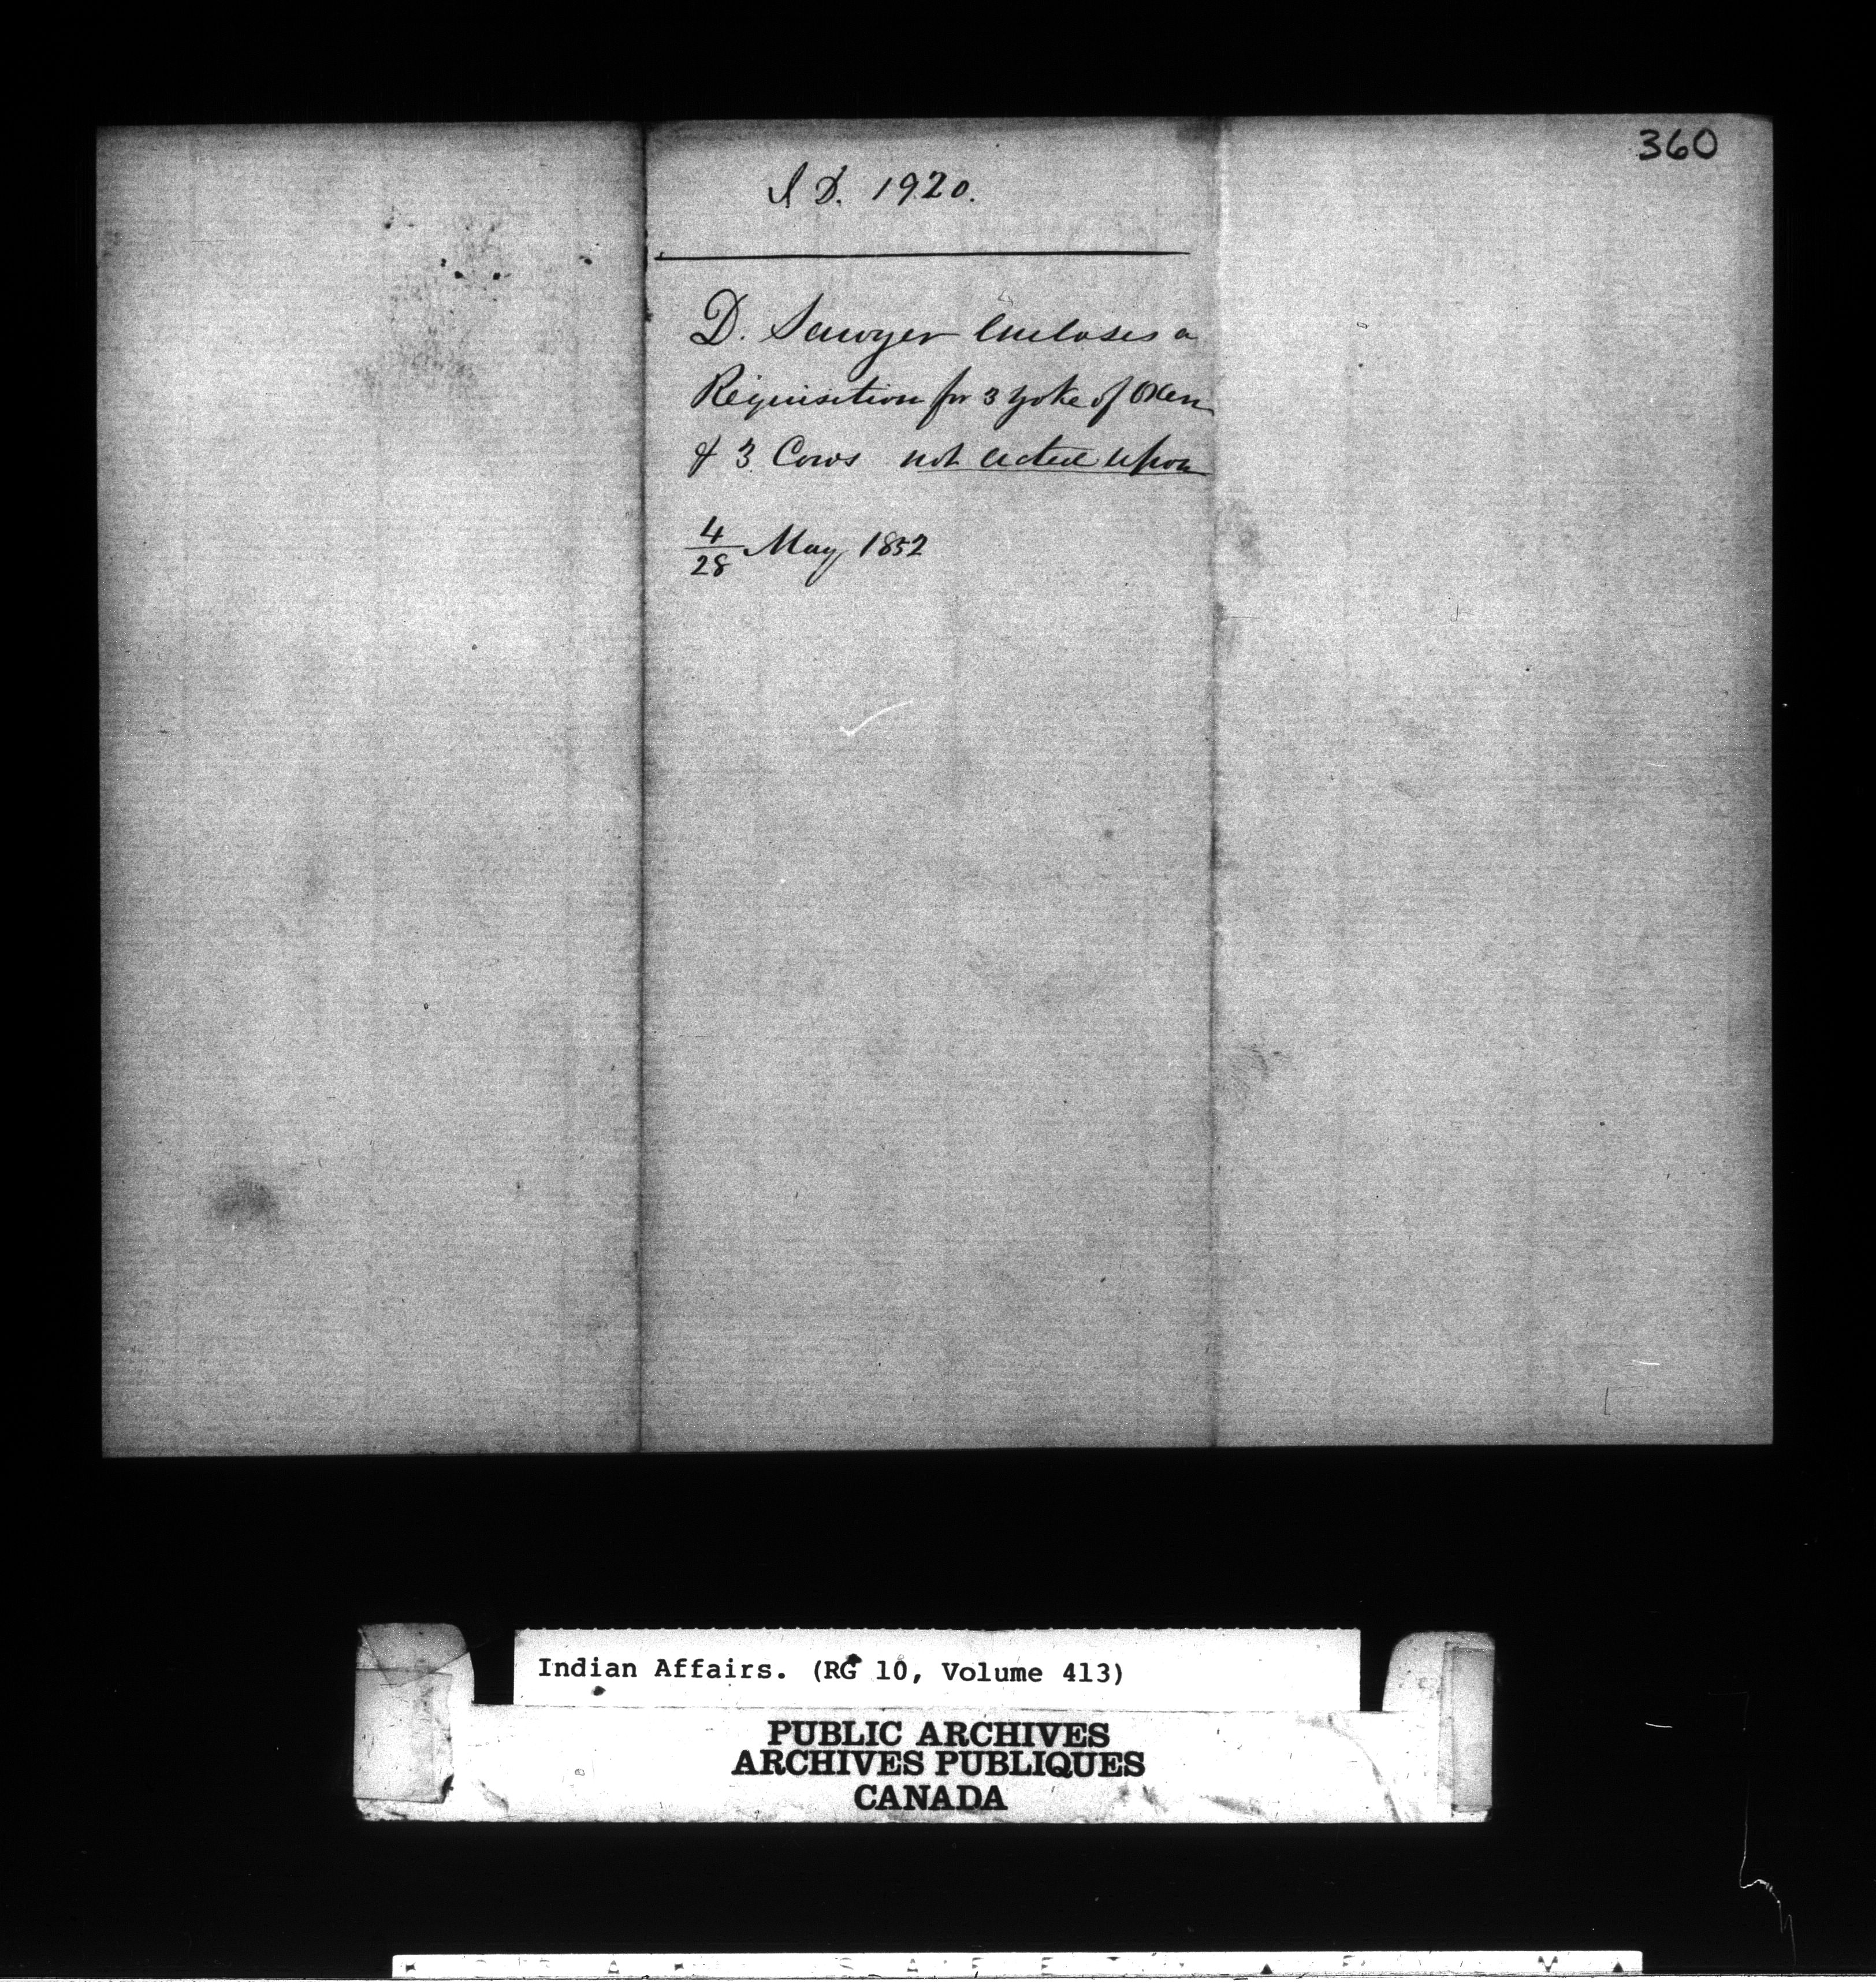 360
I D. 1920.
D. Sawyer Encloses a
Requisition for 3 yoke of Oxen
& 3 Cows not acted upon
4/28 May 1852
Indian Affairs. (RG 10, Volume 413)
PUBLIC ARCHIVES
ARCHIVES PUBLIQUES
CANADA